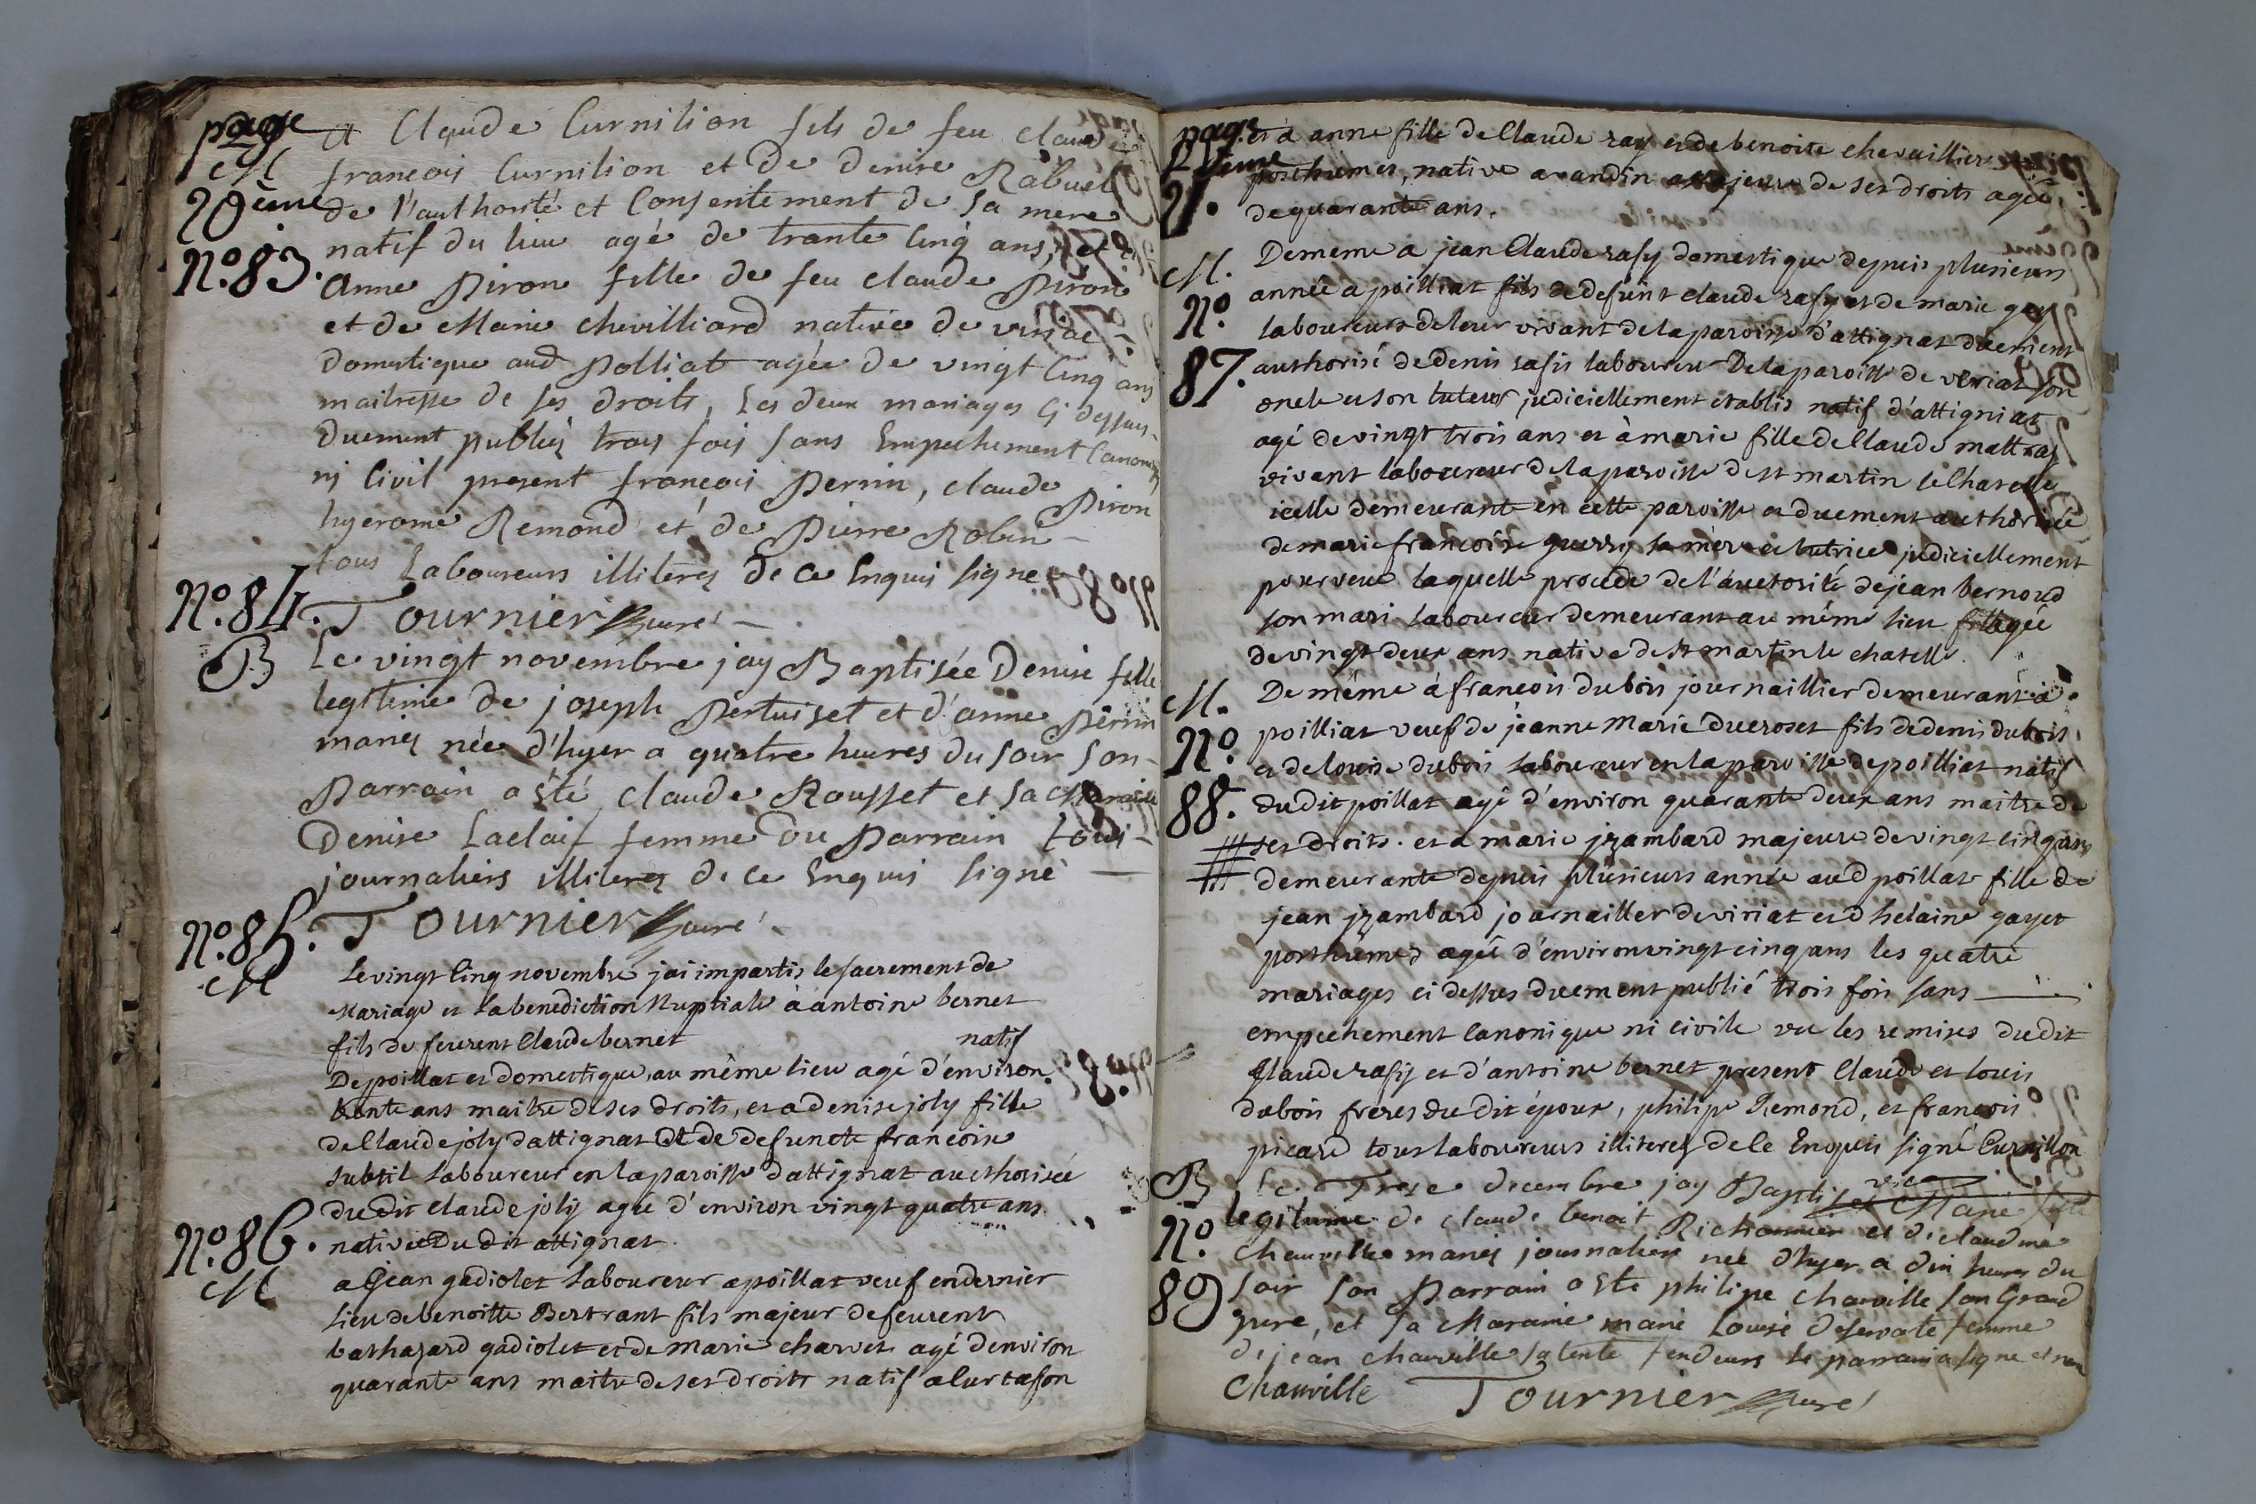 page
20eme
M
N.° 83.
a Claude Curnilion fils de feu claude
francois Curnilion et de denise Rabuel
de l'authorité et Consentement de sa mere
natif du lieu agé de trante Cinq ans, et
anne Piron fille de feu claude Piron
et de Marie chevilliard native de
domestique aud Polliat agée de vingt Cinq ans
maitresse de ses droits, les deux mariages Cj dessus
duement publiéz trois fois sans Empechement
nj Civil present francois Perrin, claude Piron
hyerome Remond et de Pierre Robin
tous Laboureurs illiterez de ce Enquis signe
Tournier curé
N.° 84.
B
Le vingt novembre jay Baptisée Denise fille
legitime de joseph Pertuiset et d'anne Perrin
mariez née d'hyer a quatre heures du soir son
Parrain a été claude Rousset et sa Maraine
Denise Laclaif femme du Parrain tous
journaliers illiterez de ce Enquis signé
Tournier curé
N.° 85.
M
Le vingt Cinq novembre jai impartis le sacrement de
Mariage et la benediction Nuptiale à antoine bernet
fils de feurent Claude bernet natif
De poillat et domestique, au même lieu agé d'environ
trente ans maitre de ses droits, et a denise joly fille
de Claude joly dattignat et de defuncte francoise
subtil Laboureur en la paroisse dattignat aucthorisée
du dit claude joly agée d'environ vingt quatre ans
native du dit attignat.
N.° 86.
M
a jean gadiolet Laboureur a poillat veuf en dernier
lieu de benoitte Bertrant fils majeur de feurent
bathazard gadiolet et de marie charvet agé d'environ
quarante ans maitre de ses droits natif a curtafon
page
21.
et à anne fille de Claude ray et de benoite chevaillier
posthumes, native a vandin majeure de ses droits agée
de quarante ans.
M.
N.°
87.
De meme a jean Claude rafy domestique depuis plusieurs
année a poilliat fils de defunt claude rafy et de marie gay
laboureurs de leur vivant de la paroisse d'attignat duement
authorisé de denis rafis laboureur De la paroisse de viriat son
oncle et son tuteur judiciellement établis natif d'attigniat
agé de vingt trois ans et à marie fille de Claude mattray
vivant laboureur de la paroisse de st martin le Chatelle
icelle demeurante en cette paroisse et duement authorisée
de marie francoise guerry sa mère et tutrice judiciellement
pourveue laquelle procede de l'auctorité de jean bernoud
son mari laboureur demeurant au même lieu fille agée
de vingt deux ans native de st martin le chatelle
M.
N.°
88.
De même à francois dubois journaillier demeurant a
poilliat veuf de jeanne Marie ducroset fils de denis dubois
et de louise dubois laboureur en la paroisse de poilliat natif
du dit poillat agé d'environ quarante deux ans maitre de
ses droits. et a marie jzambard majeure de vingt cinq ans
demeurante depuis plusieurs année aud poillat fille de
jean jzambard journaillier de viriat et d'helaine gayet
posthumes agée d'environ vingt cinq ans les quatre
mariages ci dessus duement publié trois fois sans
empechement Canonique ni civile vu les remises dudit
Claude rafis et d'antoine bernet present Claude et louis
dubois freres du dit époux, philipe Remond, et francois
picard tous laboureurs illiterez de Ce Enquis signé Curnillon
vic
B
N.°
89
Le Treze decembre jay Baptisée Marie fille
legitime de claude benoit Richonnier et de claud ine
Chauville mariez journaliers née d'hyer a dix heures du
soir son Parrain a ete philipe chauville son Grand
pere, et sa Maraine marie Louise femme
de jean chauville sa tente fendeurs le parrain a signe et non
Chauville Tournier curé